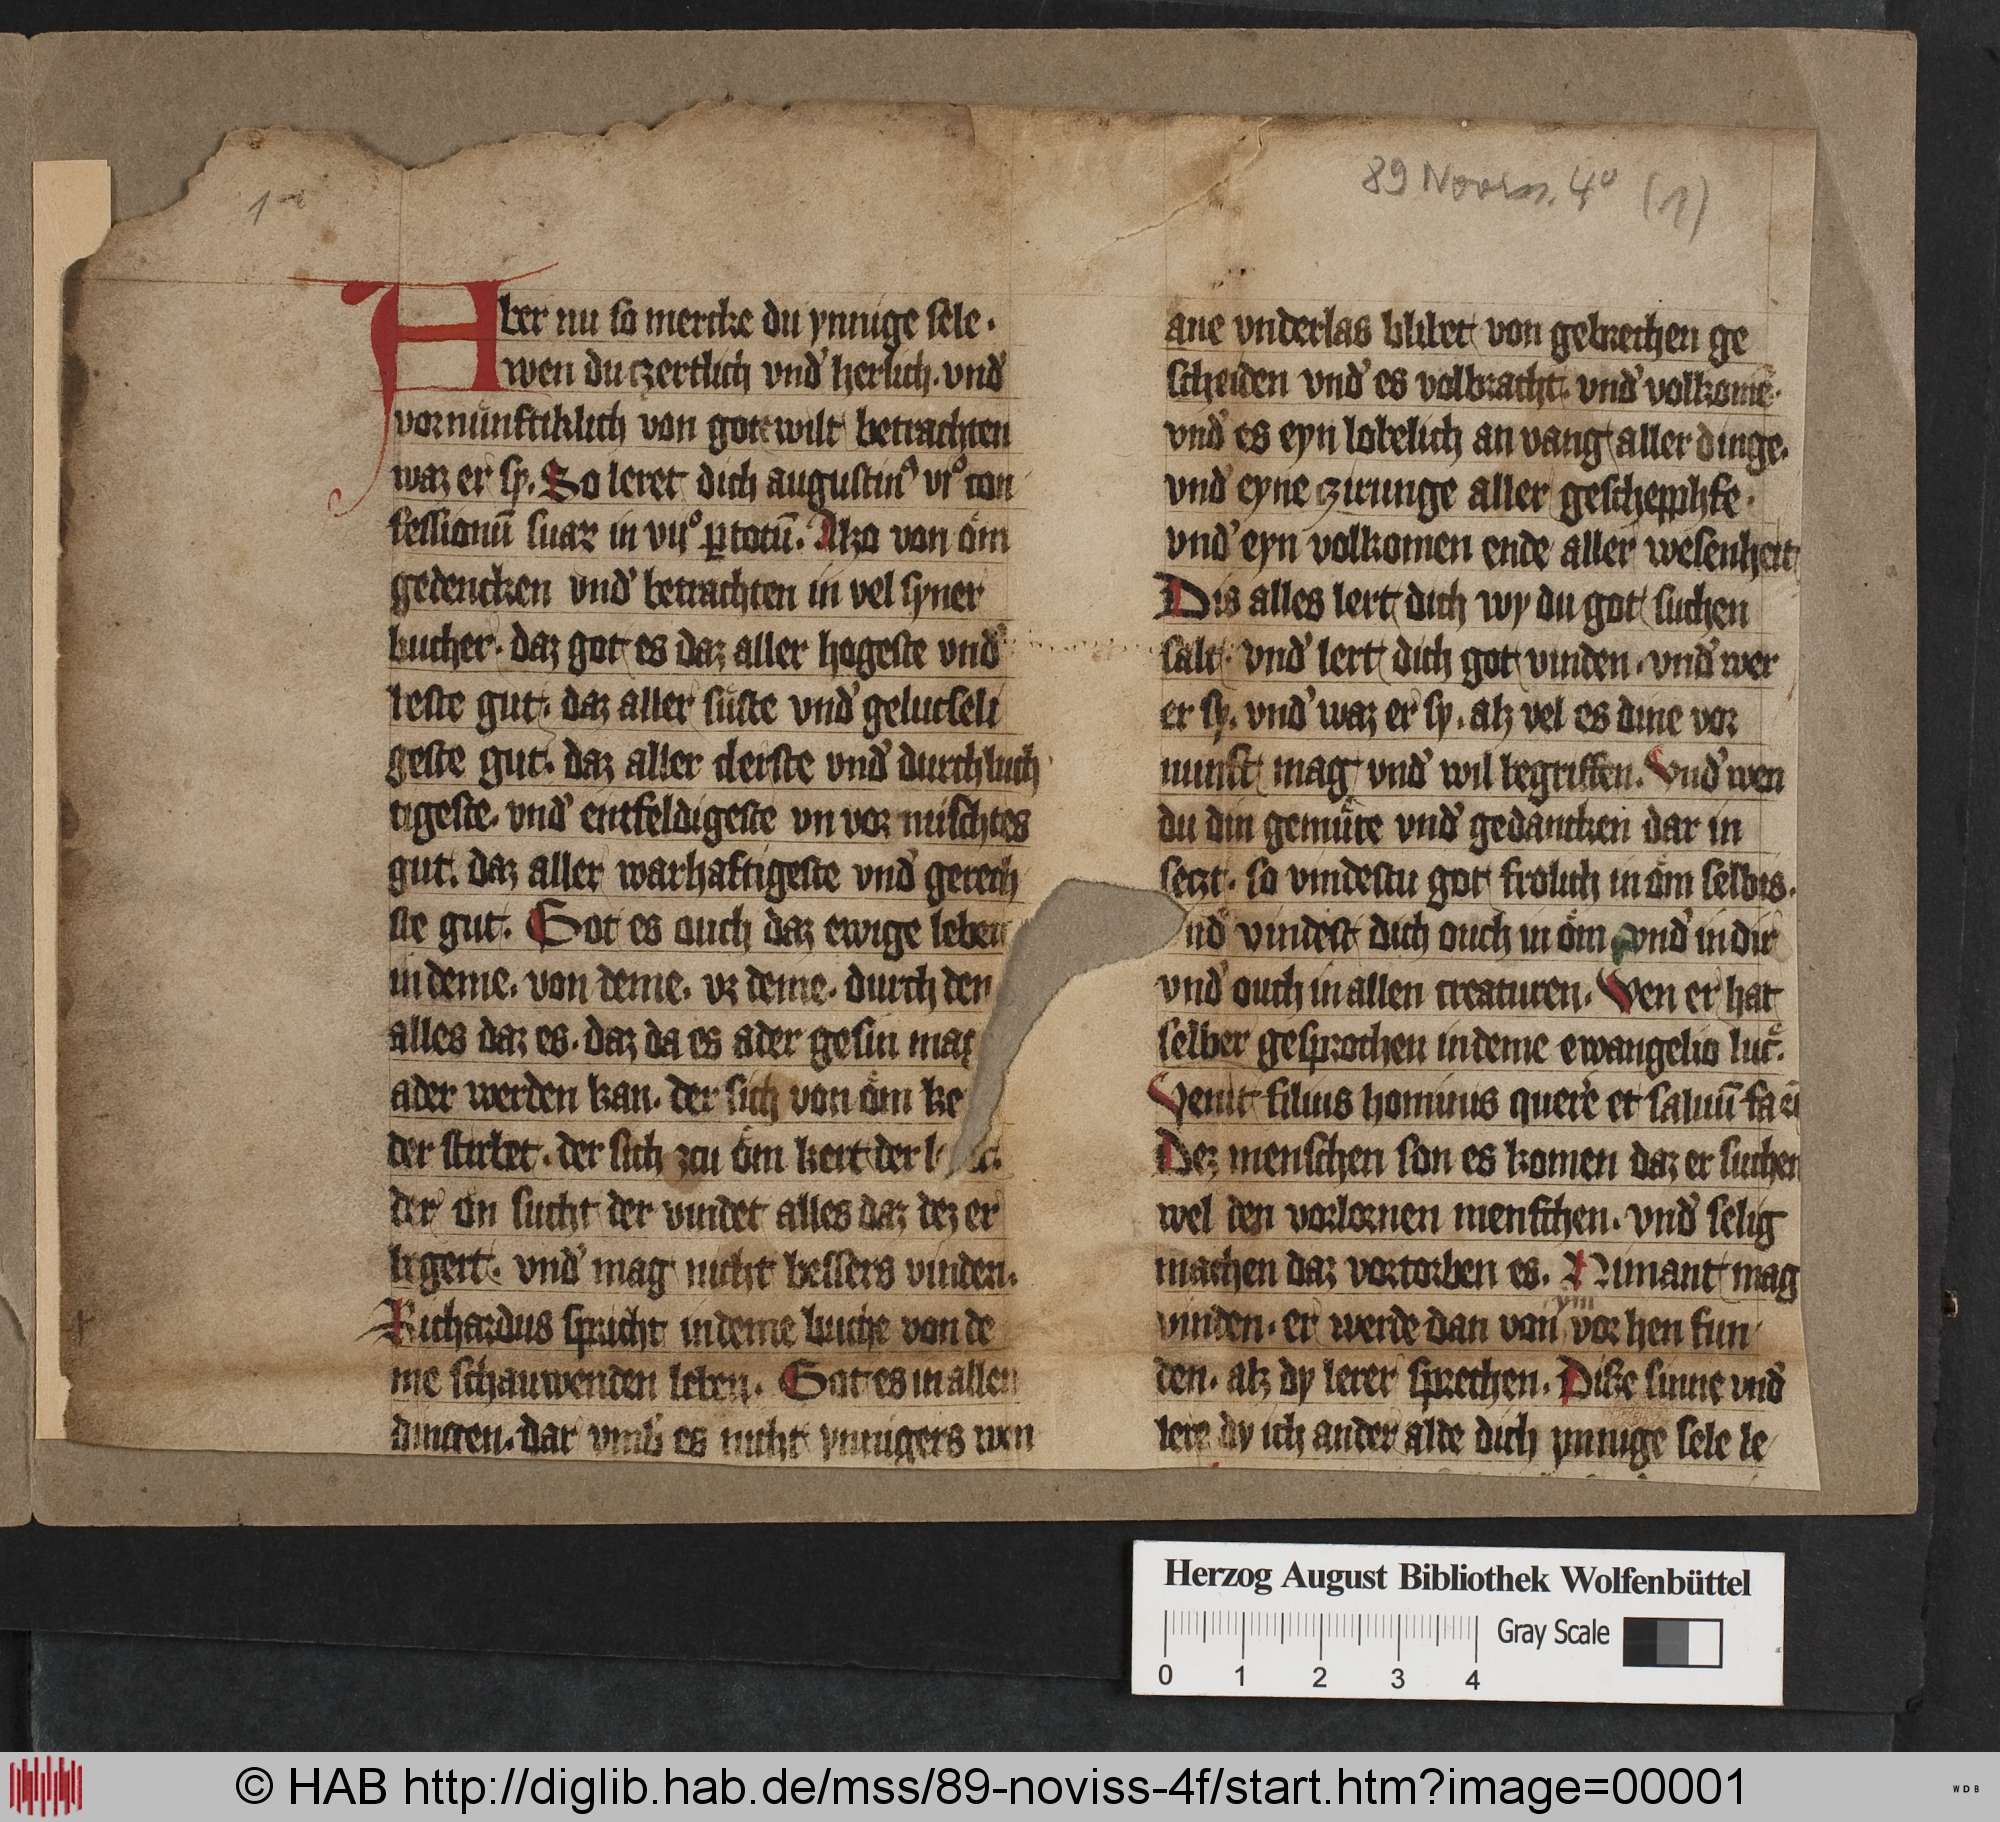 1r
89 Noviss. 4° (1)
Aber nu so mercke du ynnige sele·
wen du czertlich vnd' herlich· vnd'
vornünftiklich von got wilt betrachten
waz er sy. So leret dich augustin9 vi° con
fessionū suaꝝ in vii° ꝑ totū. Alzo von öm
gedencken vnd' betrachten in vel syner
bucher· daz got es daz aller hogeste vnd'
beste gut· daz aller süste vnd' gelutseli
geste gut· daz aller clerste vnd' durchluch
tigeste· vnd' eintfeldigeste vn vor mischtes
gut· daz aller warhaftigeste vnd' gerech
ste gut. Got es ouch daz ewige leben
in deme· von deme· vz deme· durch den
alles daz es· daz da es ader gesin mag
ader werden kan· der sich von öm ke
der stirbet· der sich zcu öm kert der
der ön sucht der vindet alles daz dez er
begert· vnd' mag nicht bessers vinden.
Richardus spricht in deme buche von de
me schauwenden leben. Got es in allen
dingen· dar vmb es nicht ynnigers wen
ane vnderlas blibet von gebrechen ge
scheiden vnd' es volbracht· vnd' volkomē·
vnd' es eyn lobelich an vang aller dinge·
vnd' eyne czirunge aller geschepphfe·
vnd' eyn volkomen ende aller wesenheit
Dis alles lert dich wy du got suchen
salt· vnd' lert dich got vinden· vnd' wer
er sy. vnd' waz er sy. alz vel es dine vor
nunft mag vnd' wil begriffen. Vnd' wen
du din gemüte vnd' gedancken dar in
seczt· so vindestu got frolich in öm selbis·
nd' vindest dich ouch in öm vnd' in dir
vnd' ouch in allen creaturen. Wen er hat
selber gesprochen in deme ewangelio luc.
Venit filius hominis querē et saluū facē
Dez menschen son es komen daz er suchen
wel den vorlornen menschen· vnd' selig
machen daz vortorben es. Nimant mag
ym
vinden· er werde dan von vor hen fun
den· alz dy lerer sprechen. Dise sinne vnd'
lere dy ich ander alde dich ynnige sele le
Herzog August Bibliothek Wolfenbüttel
Gray Scale
0 1 2 3 4
© HAB http://diglib.hab.de/mss/89-noviss-4f/start.htm?image=00001
WDB